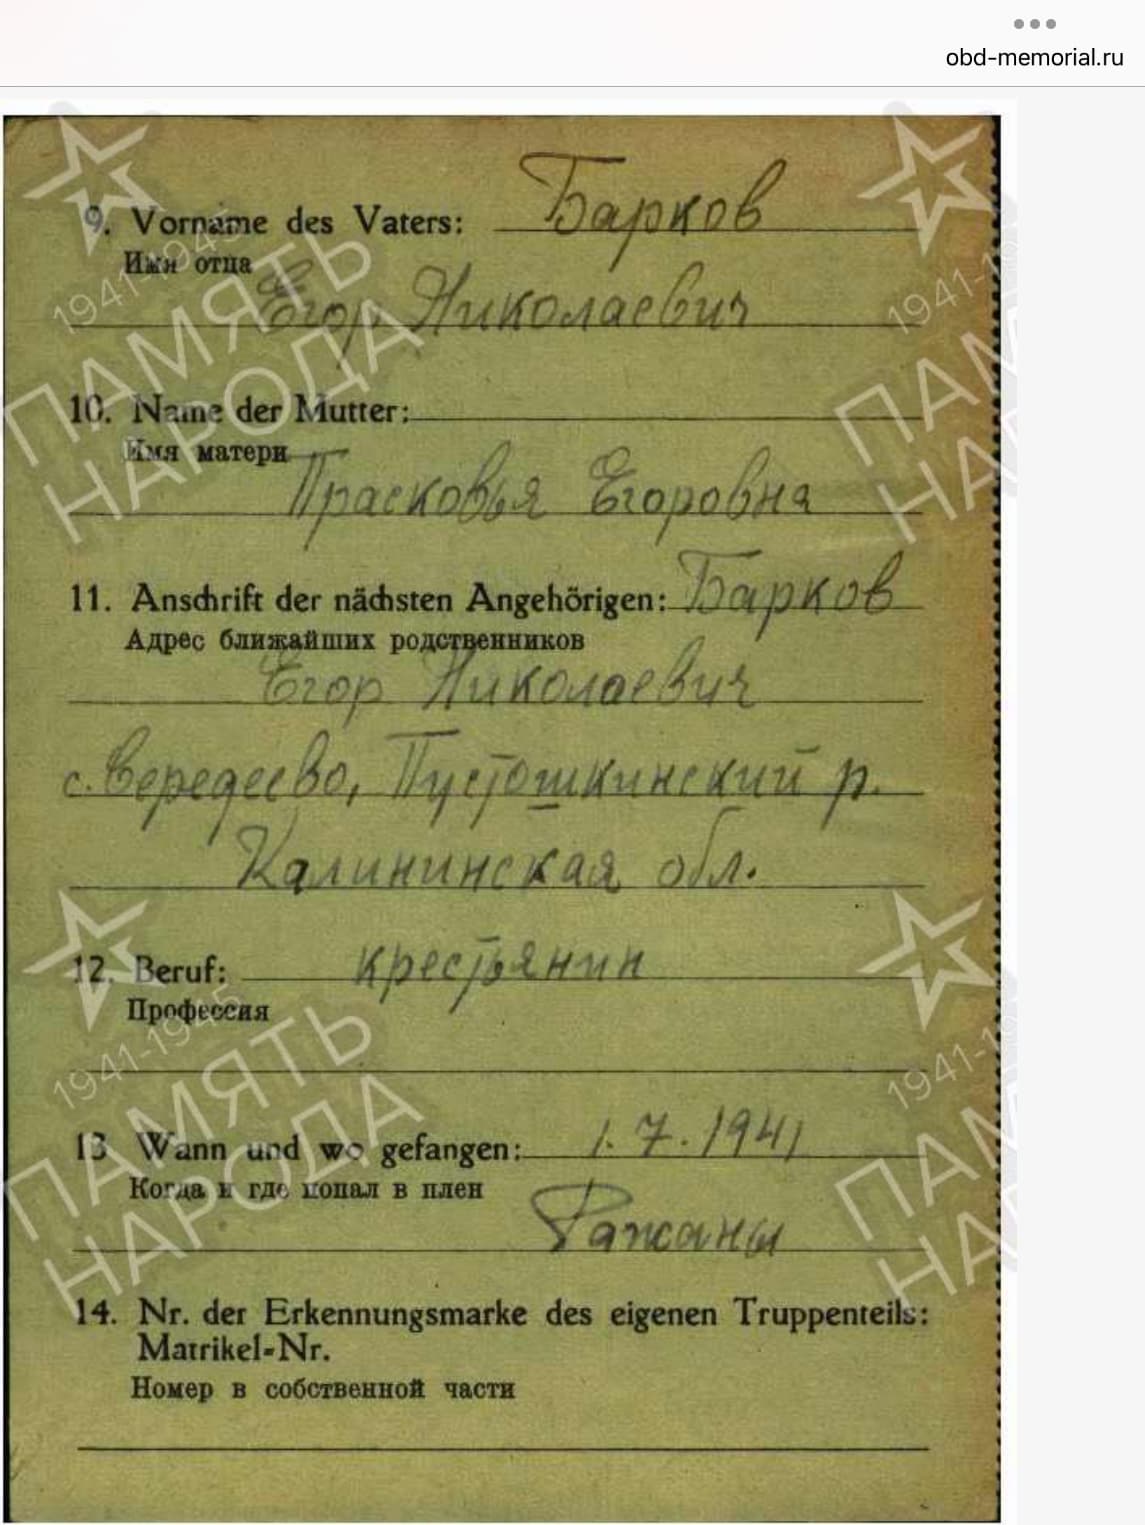 obd-memorial.ru
9. Vorname des Vaters: Барков
Имя отца
Егор Николаевич
10. Name der Mutter:
Имя матери
Прасковья Егоровна
11. Anschrift der nächsten Angehörigen: Барков
Адрес ближайших родственников
Егор Николаевич
с. Вередеево, Пустошкинский р.
Калининская обл.
12. Beruf: крестьянин
Профессия
13 Wann und wo gefangen: 1.7.1941
Когда и где попал в плен
Ражаны
14. Nr. der Erkennungsmarke des eigenen Truppenteils:
Matrikel-Nr.
Номер в собственной части
1941-1945
ПАМЯТЬ
НАРОДА
1941-1
ПАМ
НА
1941-1945
ПАМЯТЬ
НАРОДА
1941-1
ПАМ
НА